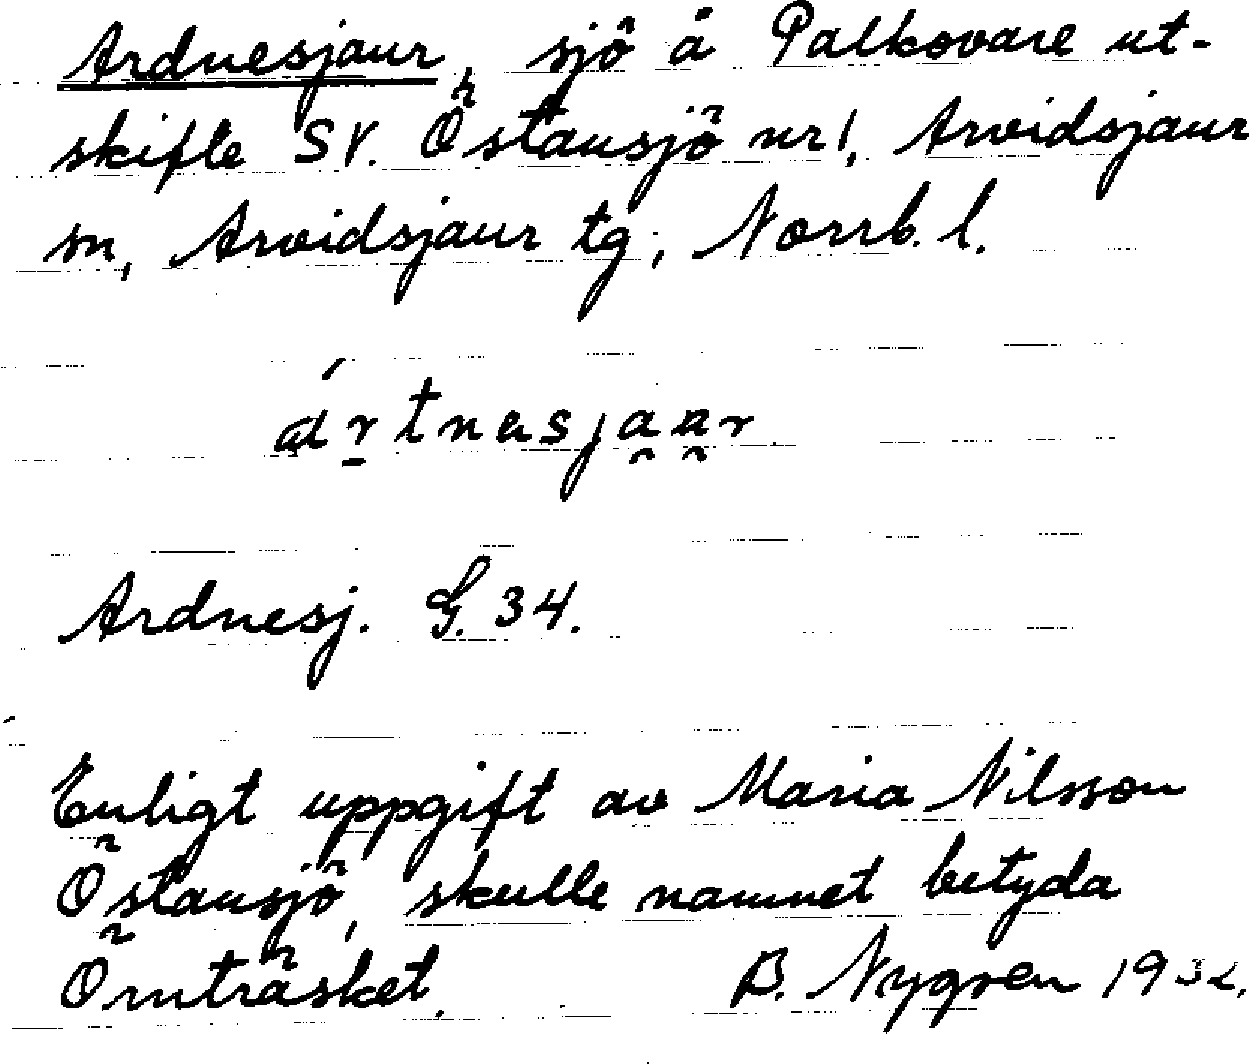 Ardnesjaur, sjö å Palkovare ut-
skifte SV. Östansjö nr 1, Arvidsjaur
sn, Arvidsjaur tg, Norrb. l.
Ardnesj. G. 34.
Enligt uppgift av Maria Nilsson
Östansjö, skulle namnet betyda
Örnträsket.
B. Nygren 1932.